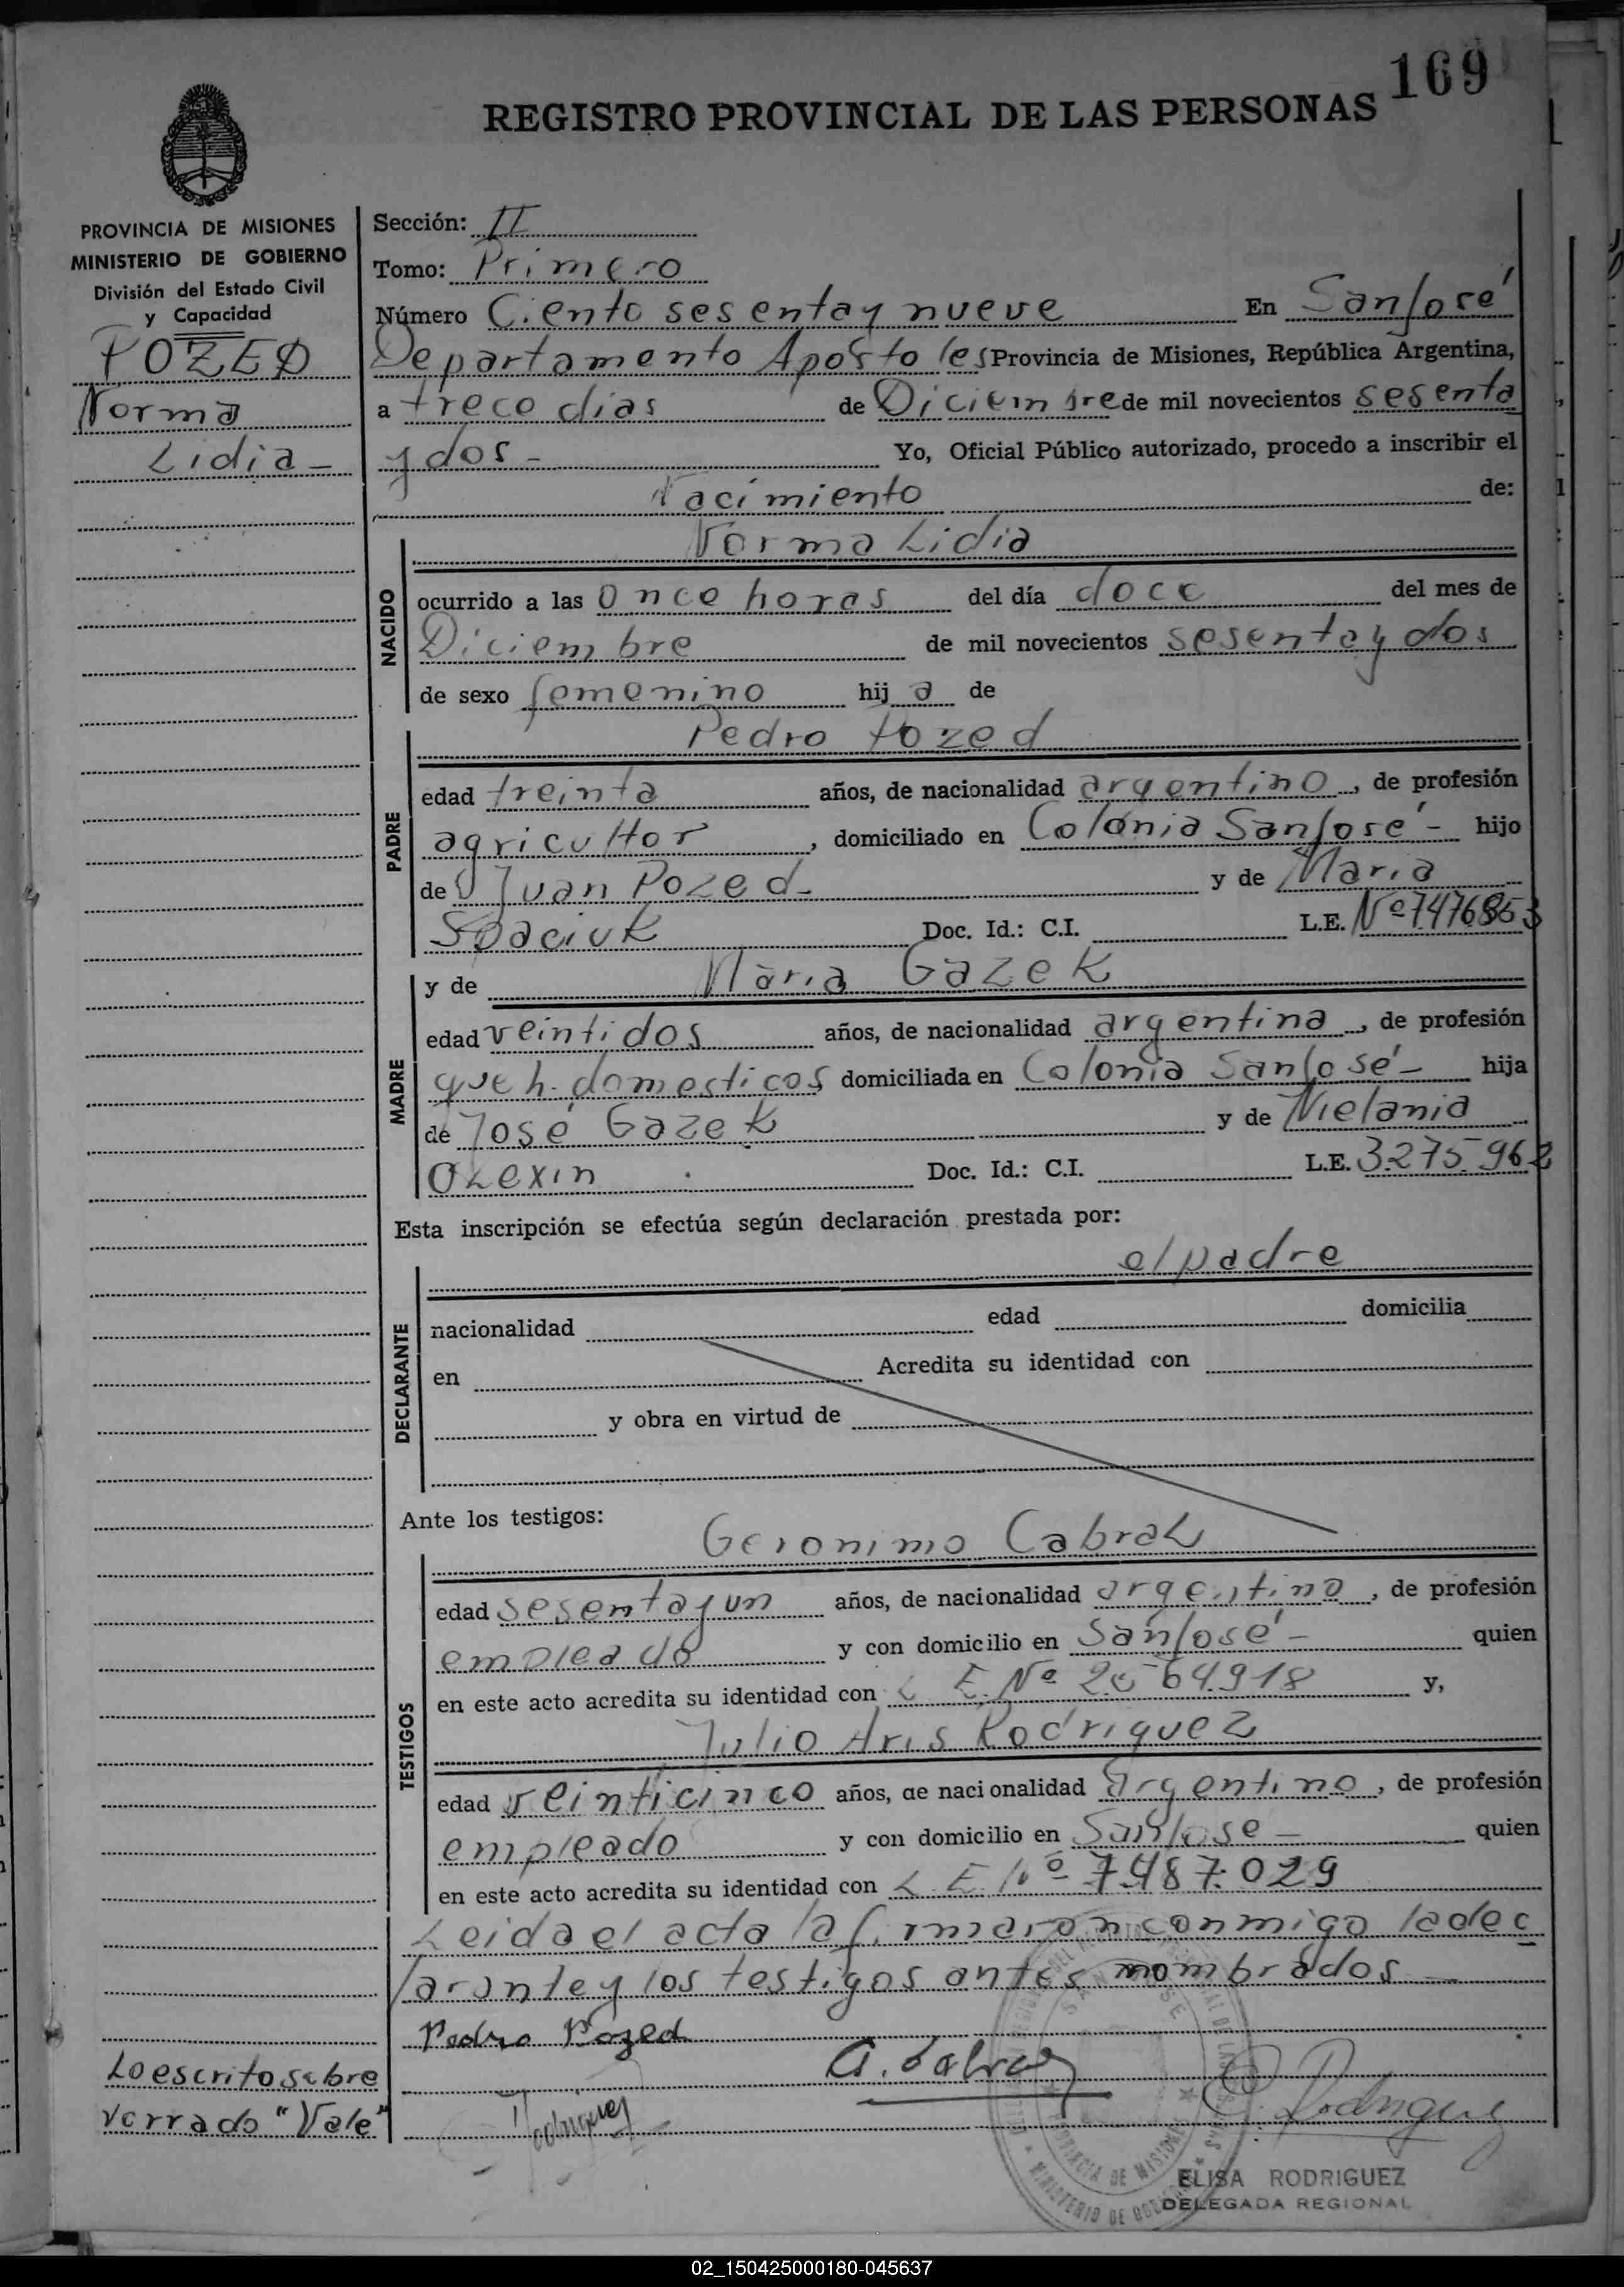 169
REGISTRO PROVINCIAL DE LAS PERSONAS
PROVINCIA DE MISIONES
MINISTERIO DE GOBIERNO
División del Estado Civil
y Capacidad
POZED
Norma
Lidia -
Sección: II
Tomo: Primero
Número Ciento sesenta y nueve En San José
Departamento Apóstoles Provincia de Misiones, República Argentina,
a trece dias de Diciembre de mil novecientos sesenta
y dos - Yo, Oficial Público autorizado, procedo a inscribir el
Nacimiento de:
Norma Lidia
NACIDO
ocurrido a las once horas del día doce del mes de
Diciembre de mil novecientos sesenta y dos
de sexo femenino hij a de
Pedro Pozed
PADRE
edad treinta años, de nacionalidad argentino, de profesión
agricultor, domiciliado en Colonia San José - hijo
de Juan Pozed - y de Maria
Spaciuk Doc. Id.: C.I. L.E. Nº 7.476.853
MADRE
y de Maria Gazek
edad veintidos años, de nacionalidad argentina, de profesión
queh. domesticos domiciliada en Colonia San José - hija
de José Gazek y de Melania
Olexin Doc. Id.: C.I. L.E. 3.275.962
Esta inscripción se efectúa según declaración prestada por:
el padre
DECLARANTE
nacionalidad edad domicilia
en Acredita su identidad con
y obra en virtud de
Ante los testigos:
Geronimo Cabral
TESTIGOS
edad sesenta y un años, de nacionalidad argentino, de profesión
empleado y con domicilio en San José - quien
en este acto acredita su identidad con L.E. Nº 2.064.918 y,
Julio Aris Rodriguez
edad veinticinco años, de nacionalidad argentino, de profesión
empleado y con domicilio en San Jose - quien
en este acto acredita su identidad con L.E. Nº 7.487.029
Leida el acta la firmaron conmigo la dec
larante y los testigos antes nombrados -
Pedro Pozed
Lo escrito sobre
verrado "Vale"
G. Cabral
Rodriguez
Rodriguez
SAN JOSE
PROVINCIA DE MISIONES
MINISTERIO DE GOBIERNO
ELISA RODRIGUEZ
DELEGADA REGIONAL
02_150425000180-045637